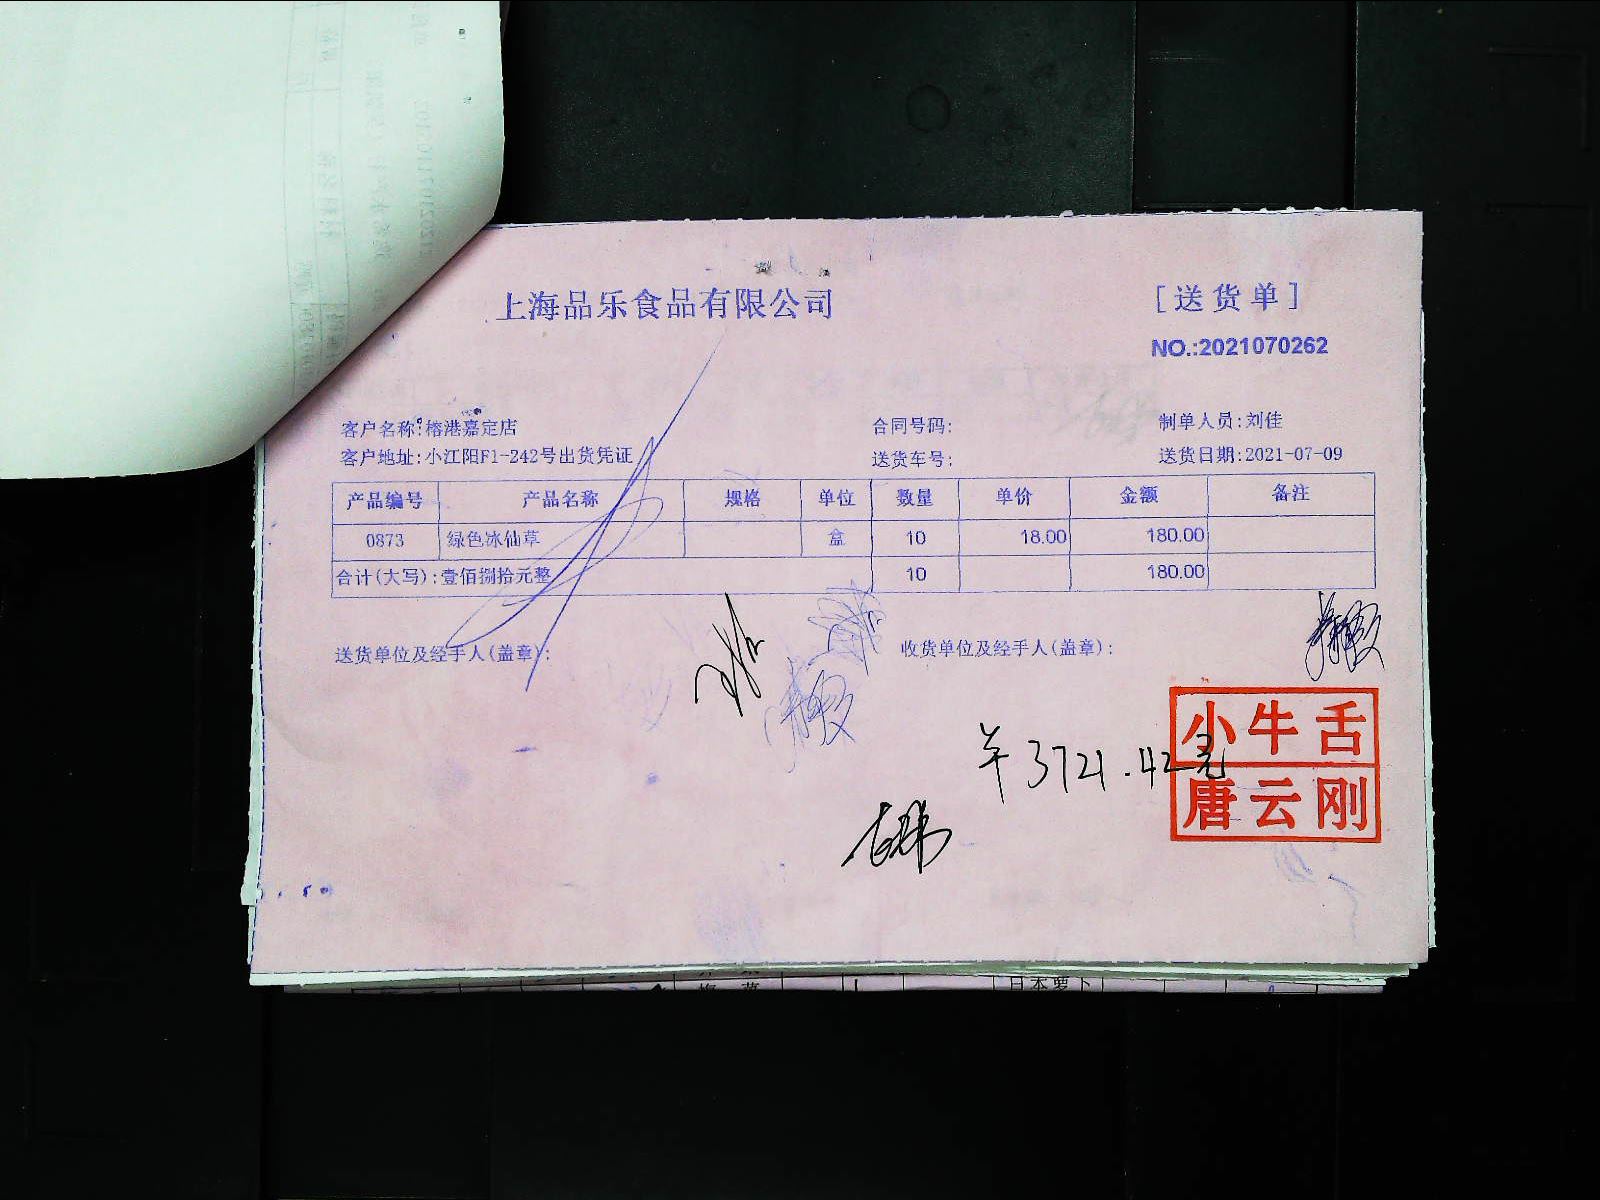 上海品乐食品有限公司
[送货单]
NO.:2021070262
客户名称:榕港嘉定店 合同号码: 制单人员:刘佳
客户地址:小江阳F1-242号出货凭证 送货车号: 送货日期:2021-07-09
产品编号 产品名称 规格 单位 数量 单价 金额 备注
0873 绿色冰仙草 盒 10 18.00 180.00
合计(大写):壹佰捌拾元整 10 180.00
送货单位及经手人(盖章): 收货单位及经手人(盖章):
小牛舌
¥3721.42元
唐云刚
日本萝卜